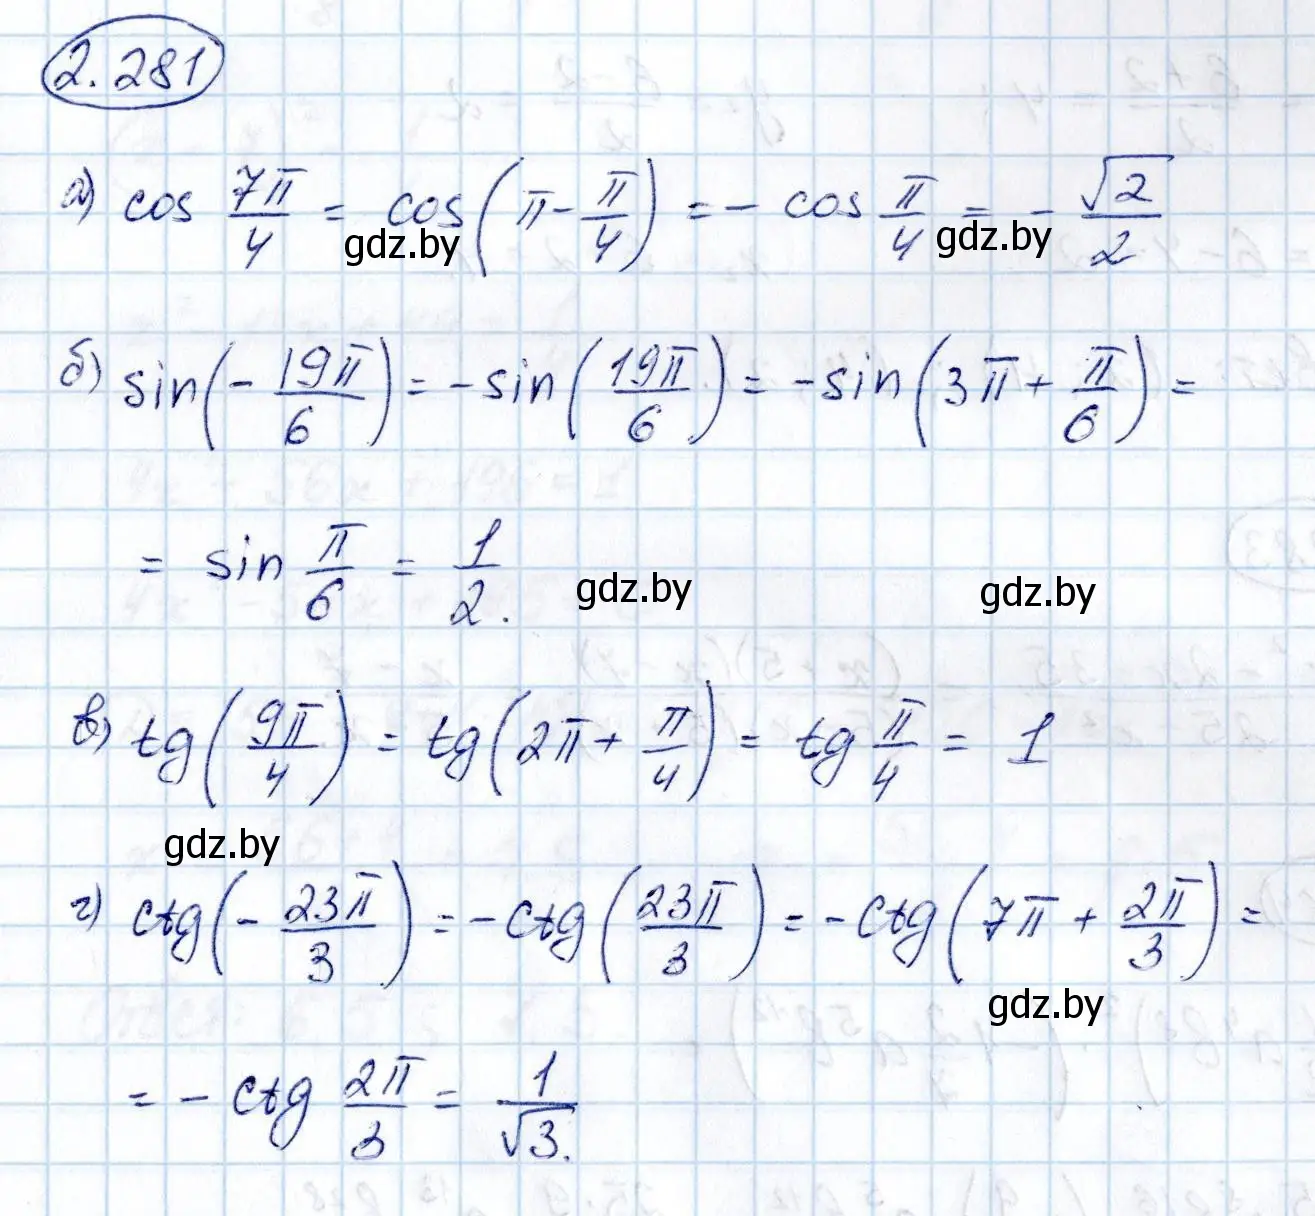 2.281
а) cos 7π/4 = cos(π - π/4) = - cos π/4 = - √2/2
gdz.by gdz.by
б) sin(- 19π/6) = -sin(19π/6) = -sin(3π + π/6) =
= sin π/6 = 1/2.
gdz.by gdz.by
в) tg(9π/4) = tg(2π + π/4) = tg π/4 = 1
gdz.by
г) ctg(- 23π/3) = -ctg(23π/3) = -ctg(7π + 2π/3) =
gdz.by
= - ctg 2π/3 = 1/√3.